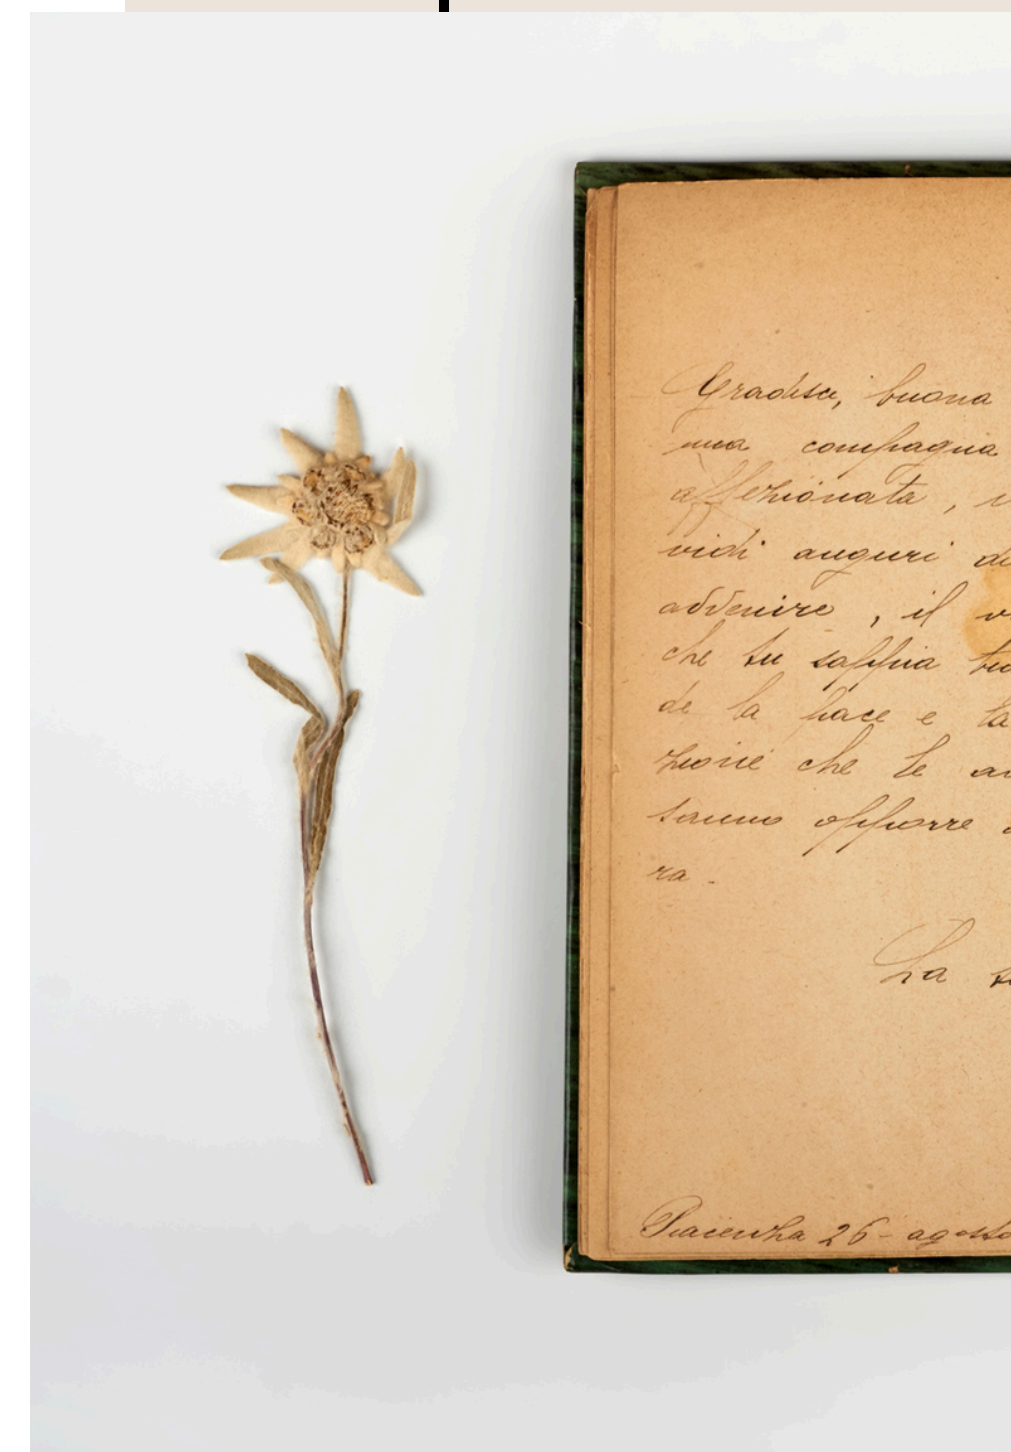 Gradisci, buona
una compagna
affezionata, i
vidi auguri di
advenire, il v
che tu sappia tro
de la pace e la
zioni che le av
sanno opporre a
ra.
La tu
Piacenza 26 - agosto